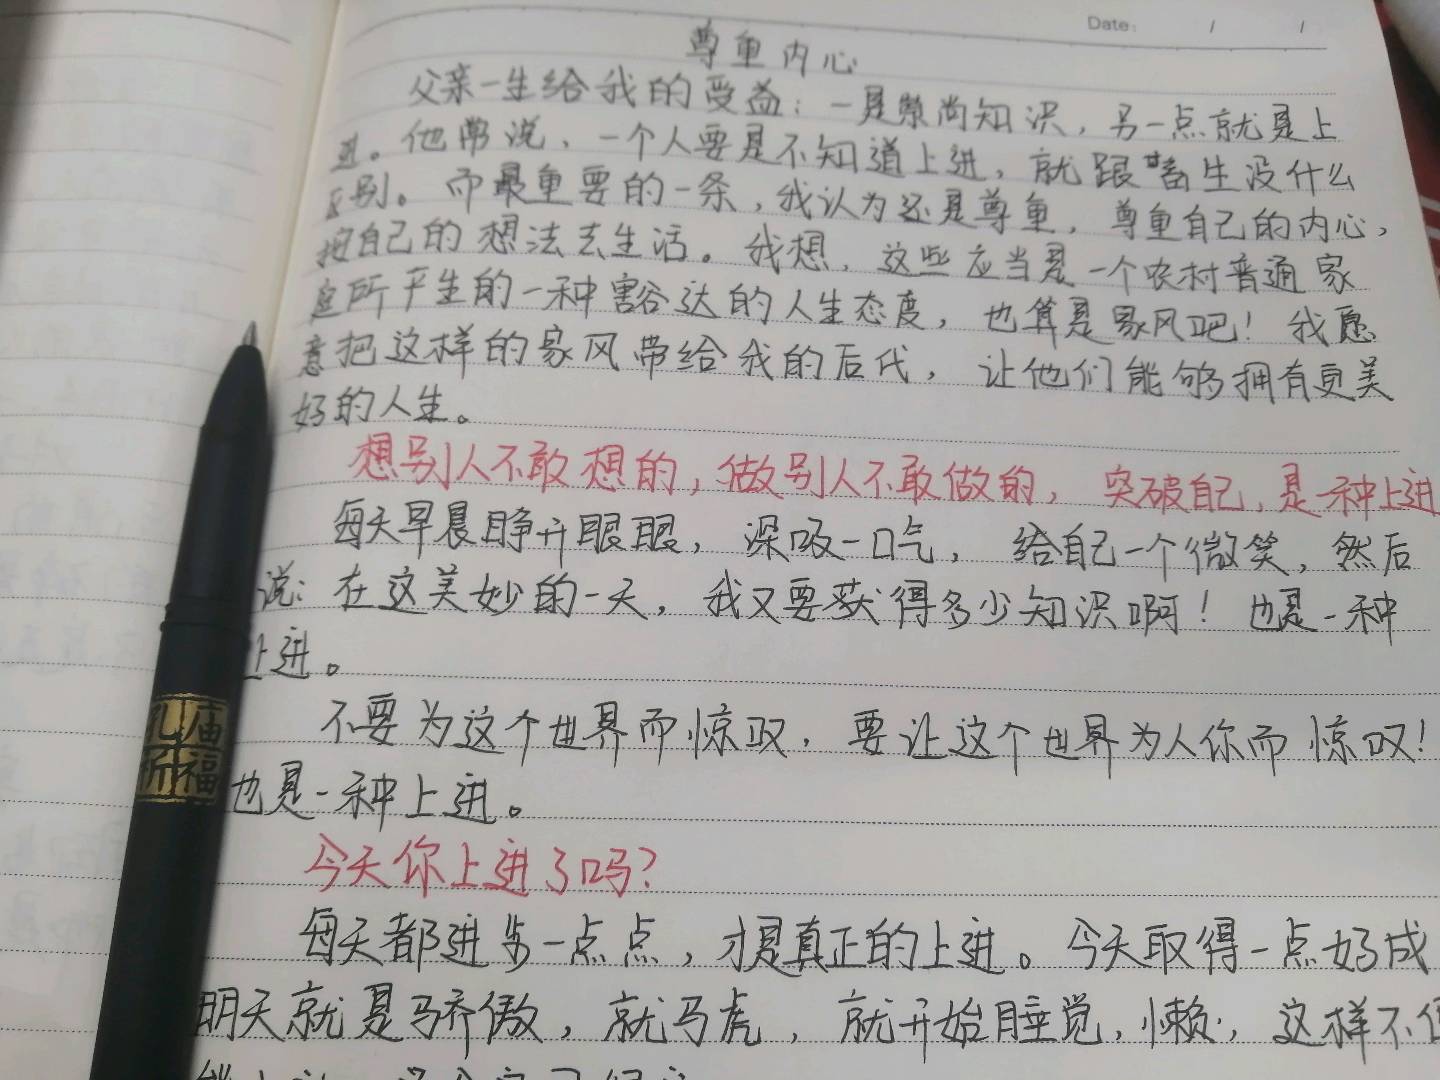 Date: / /
尊重内心
父亲一生给我的受益:一是崇尚知识,另一点就是上
进。他常说,一个人要是不知道上进,就跟畜生没什么
区别。而最重要的一条,我认为还是尊重,尊重自己的内心,
按自己的想法去生活。我想,这些应当是一个农村普通家
庭所产生的一种豁达的人生态度,也算是家风吧!我愿
意把这样的家风带给我的后代,让他们能够拥有更美
好的人生。
想别人不敢想的,做别人不敢做的,突破自己,是一种上进
每天早晨睁开眼眼,深吸一口气,给自己一个微笑,然后
说:在这美妙的一天,我又要获得多少知识啊!也是一种
上进。
不要为这个世界而惊叹,要让这个世界为人你而惊叹!
也是一种上进。
今天你上进了吗?
每天都进步一点点,才是真正的上进。今天取得一点好成
明天就是骄傲,就马虎,就开始睡觉,懒,这样不
孔庙
祈福